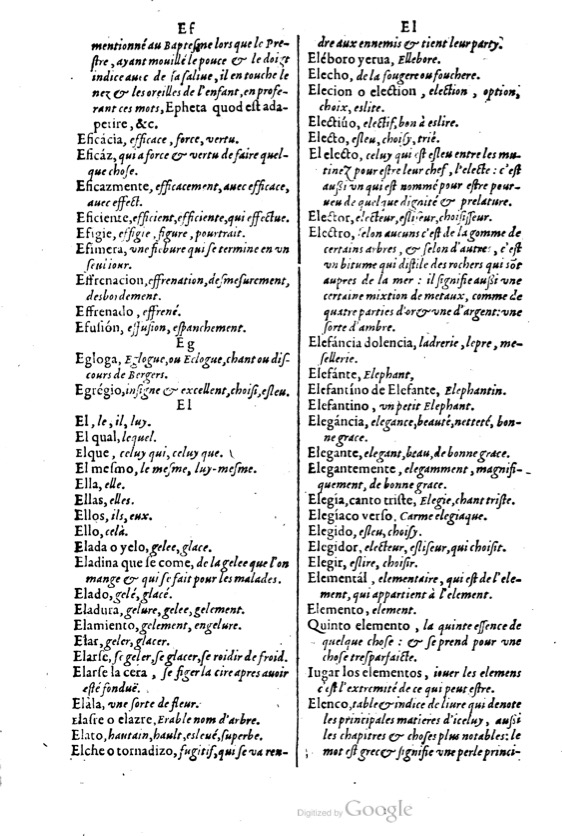 Ef
mentionné au Baptesme lors que le Pre-
stre, ayant mouillé le pouce & le doigt
indice auec de sa saliue, il en touche le
nez & les oreilles de l'enfant, en profe-
rant ces mots, Epheta quod est ada-
perire, &c.
Eficácia, efficace, force, vertu.
Eficáz, qui a force & vertu de faire quel-
que chose.
Eficazmente, efficacement, auec efficace,
auec effect.
Eficiente, efficient, efficiente, qui effectue.
Efigie, effigie, figure, pourtrait.
Efimera, vne fiebure qui se termine en vn
seul iour.
Effrenacion, effrenation, desmesurement,
desbordement.
Effrenado, effrené.
Efusión, effusion, espanchement.
Eg
Egloga, Eglogue, ou Eclogue, chant ou dis-
cours de Bergers.
Egrégio, insigne & excellent, choisi, esleu.
El
El, le, il, luy.
El qual, lequel.
Elque, celuy qui, celuy que.
El mesmo, le mesme, luy-mesme.
Ella, elle.
Ellas, elles.
Ellos, ils, eux.
Ello, celà.
Elada o yelo, gelee, glace.
Eladina que se come, de la gelee que l'on
mange & qui se fait pour les malades.
Elado, gelé, glacé.
Eladura, gelure, gelee, gelement.
Elamiento, gelement, engelure.
Elar, geler, glacer.
Elarse, se geler, se glacer, se roidir de froid.
Elarse la cera, se figer la cire apres auoir
esté fonduë.
Elàla, vne sorte de fleur.
Elasre o elazre, Erable nom d'arbre.
Elato, hautain, hault, esleué, superbe.
Elche o tornadizo, fugitif, qui se va ren-
El
dre aux ennemis & tient leur party.
Eléboro yerua, Ellebore.
Elecho, de la fougere ou fouchere.
Elecion o election, election, option,
choix, eslite.
Electiúo, electif, bon à eslire.
Electo, esleu, choisy, trié.
El electo, celuy qui est esleu entre les mu-
tinez pour estre leur chef, l'electe : c'est
aussi vn qui est nommé pour estre pour-
ueu de quelque dignité & prelature.
Elector, electeur, esliseur, choisisseur.
Electro, selon aucuns c'est de la gomme de
certains arbres, & selon d'autres, c'est
vn bitume qui distile des rochers qui sõt
aupres de la mer : il signifie aussi vne
certaine mixtion de metaux, comme de
quatre parties d'or & vne d'argent: vne
sorte d'ambre.
Elefáncia dolencia, ladrerie, lepre, me-
sellerie.
Elefánte, Elephant,
Elefantíno de Elefante, Elephantin.
Elefantino, vn petit Elephant.
Elegáncia, elegance, beauté, netteté, bon-
ne grace.
Elegante, elegant, beau, de bonne grace.
Elegantemente, elegamment, magnifi-
quement, de bonne grace.
Elegia, canto triste, Elegie, chant triste.
Elegíaco verso, Carme elegiaque.
Elegido, esleu, choisy.
Elegidor, electeur, esliseur, qui choisit.
Elegir, eslire, choisir.
Elementál, elementaire, qui est de l'ele-
ment, qui appartient à l'element.
Elemento, element.
Quinto elemento, la quinte essence de
quelque chose : & se prend pour vne
chose tresparfaicte.
Iugar los elementos, iouer les elemens
c'est l'extremité de ce qui peut estre.
Elenco, table & indice de liure qui denote
les principales matieres d'iceluy, aussi
les chapitres & choses plus notables: le
mot est grec & signifie vne perle princi-
Digitized by Google